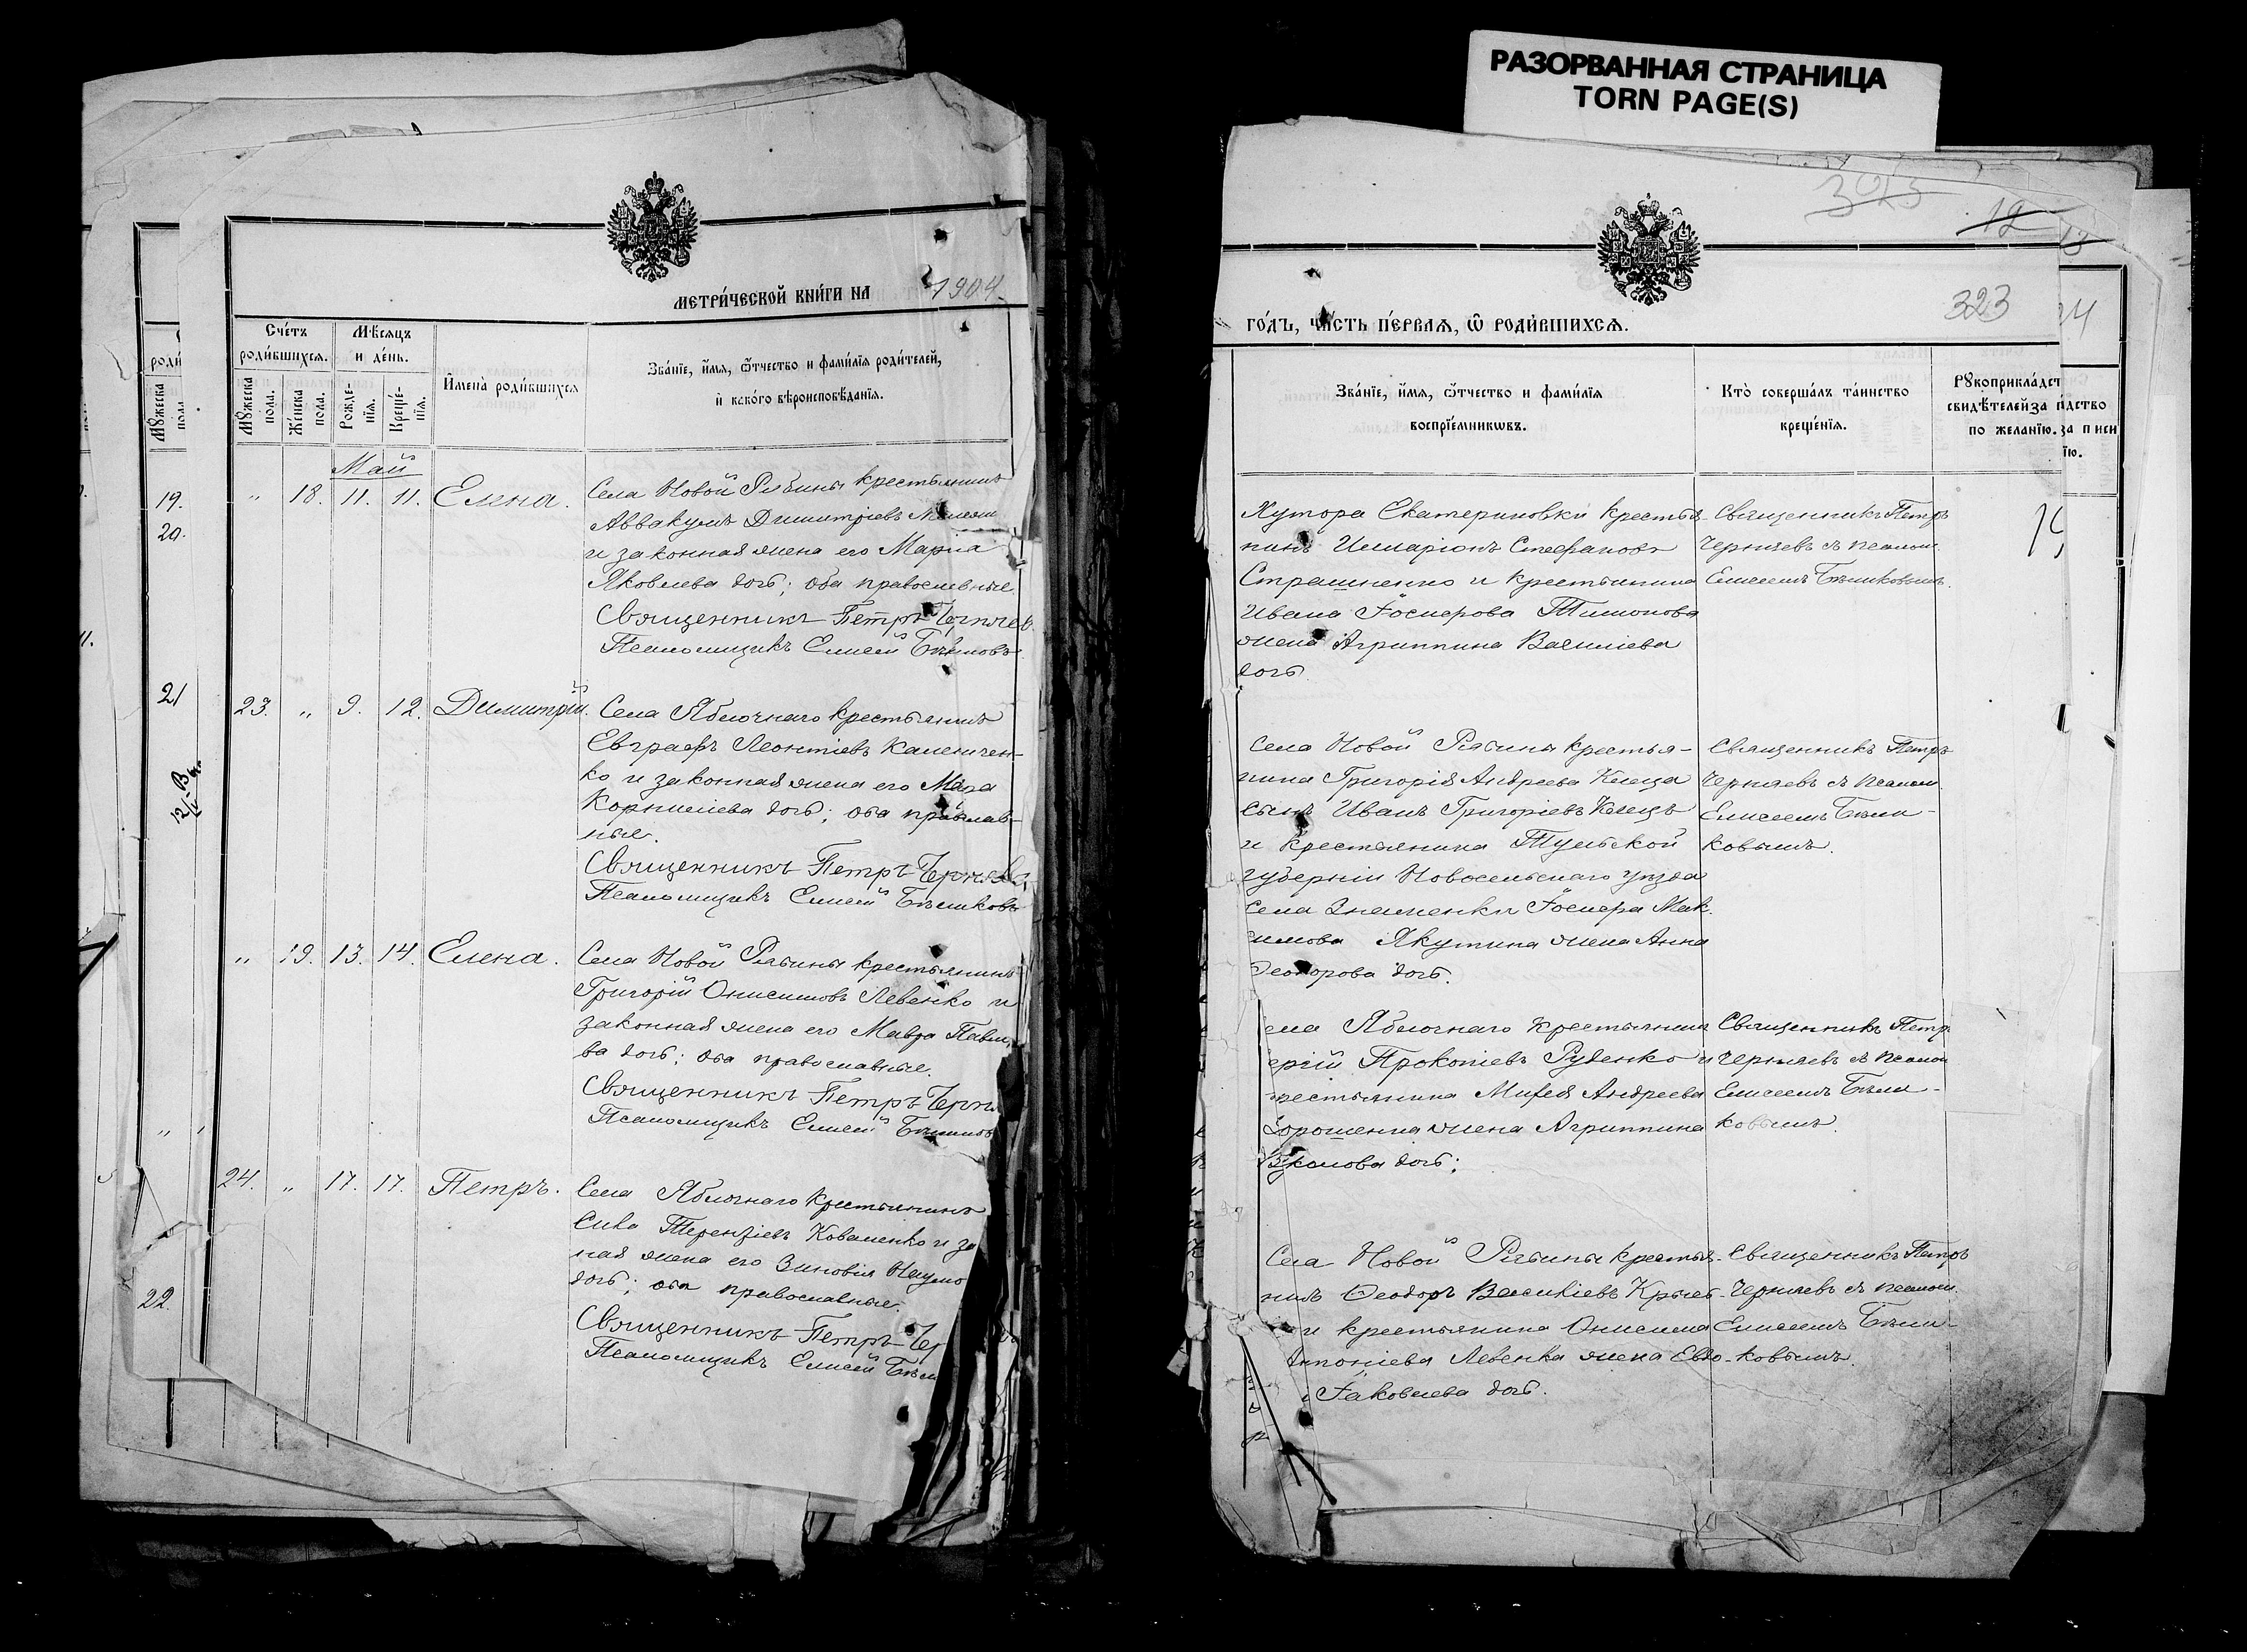 РАЗОРВАННАЯ СТРАНИЦА
TORN PAGE(S)
МЕТРИ́ЧЕСКОЙ КНИ́ГИ НА 1904
Сче́тъ роди́вшихся.
Мѣ́сяцъ и де́нь.
Мꙋ́жеска пола.
Же́нска пола.
Рожде́нїя.
Креще́нїя.
И҆мена̀ роди́вшихся
Зва́нїе, и҆́мя, ѻ҆́тчество и фами́лїя роди́телей,
и҆ како́го вѣроисповѣ́данїя.
Май
„ 18. 11. 11. Елена.
Села Новой Рябины крестьянинъ
Аввакумъ Димитріевъ
и законная жена его Марія
Яковлева дочь; оба православные.
Священникъ Петръ Черняевъ
Псаломщикъ Елисей
23. „ 9. 12. Димитрій.
Села Яблочнаго крестьянинъ
Евграфъ Леонтіевъ Калениченко
ко и законная жена его
Корниліева дочь; оба православ-
ные.
Священникъ Петръ Черняевъ
Псаломщикъ Елисей Бѣликовъ
„ 19. 13. 14. Елена.
Села Новой Рябины крестьянинъ
Григорій Онисимовъ Левенко и
законная жена его Мавра Павло-
ва дочь; оба православные.
Священникъ Петръ Черня
Псаломщикъ Елисей
24. „ 17. 17. Петръ.
Села Яблочнаго крестьянинъ
Сила Терентіевъ Коваленко и за
ная жена его Зиновія Наумо
дочь; оба православные.
Священникъ Петръ Чер
Псаломщикъ Елисей Бѣли
19.
20.
21
22.
323
12
323
ГО́ДЪ, ЧА́СТЬ ПЕ́РВАЯ, Ѽ РОДИ́ВШИХСЯ.
Зва́нїе, и҆́мя, ѻ҆́тчество и фами́лїя
воспрїе́мникѡвъ.
Кто̀ соверша́лъ та́инство
креще́нїя.
Рꙋкоприкла́дст
свидѣ́телей за
по жела́нїю.
Хутора Екатериновки крестья-
нинъ Иларіонъ Стефановъ
Страшненко и крестьянина
Ивана Іосифова Тимонова
жена Агриппина Василіева
дочь.
Священникъ Петръ
Черняевъ съ псалом.
Елисеемъ Бѣликовымъ.
Села Новой Рябины крестья-
нина Григорія Андреева Клеца
сынъ Иванъ Григоріевъ Клецъ
и крестьянина Тульской
губерніи Новосельскаго уѣзда
села Знаменки Іосифа Мак-
симова Якутина жена Анна
Ѳеодорова дочь.
Священникъ Петръ
Черняевъ съ псалом.
Елисеемъ Бѣли-
ковымъ.
ела Яблочнаго крестьянинъ
ергій Прокопіевъ Руденко и
рестьянина Миѳея Андреева
Дорошенка жена Агриппина
дочь;
Священникъ Петр.
Черняевъ съ псалом
Елисеемъ Бѣли-
ковымъ.
Села Новой Рябины крестья-
нинъ Ѳеодоръ Василіевъ
и крестьянина Онисима
Антоніева Левенка жена Евдо-
Іаковлева дочь.
Священникъ Петръ
Черняевъ съ псалом.
Елисеемъ Бѣли-
ковымъ.